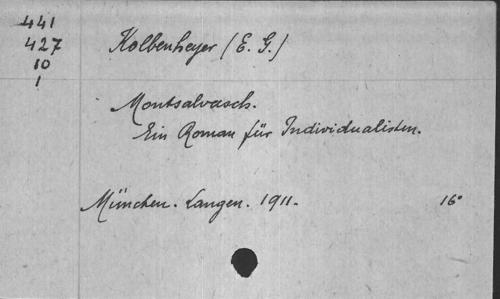 441
427
10
1
Kolbenheyer (E. G.)
Montsalvasch.
Ein Roman für Individualisten.
München. Langen. 1911. 16°